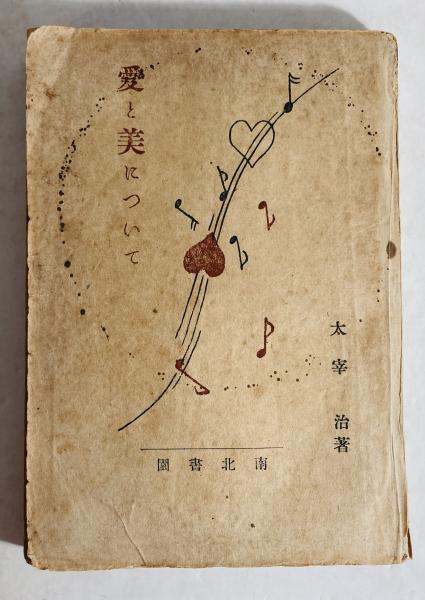 愛と美について
太宰治著
南北書園